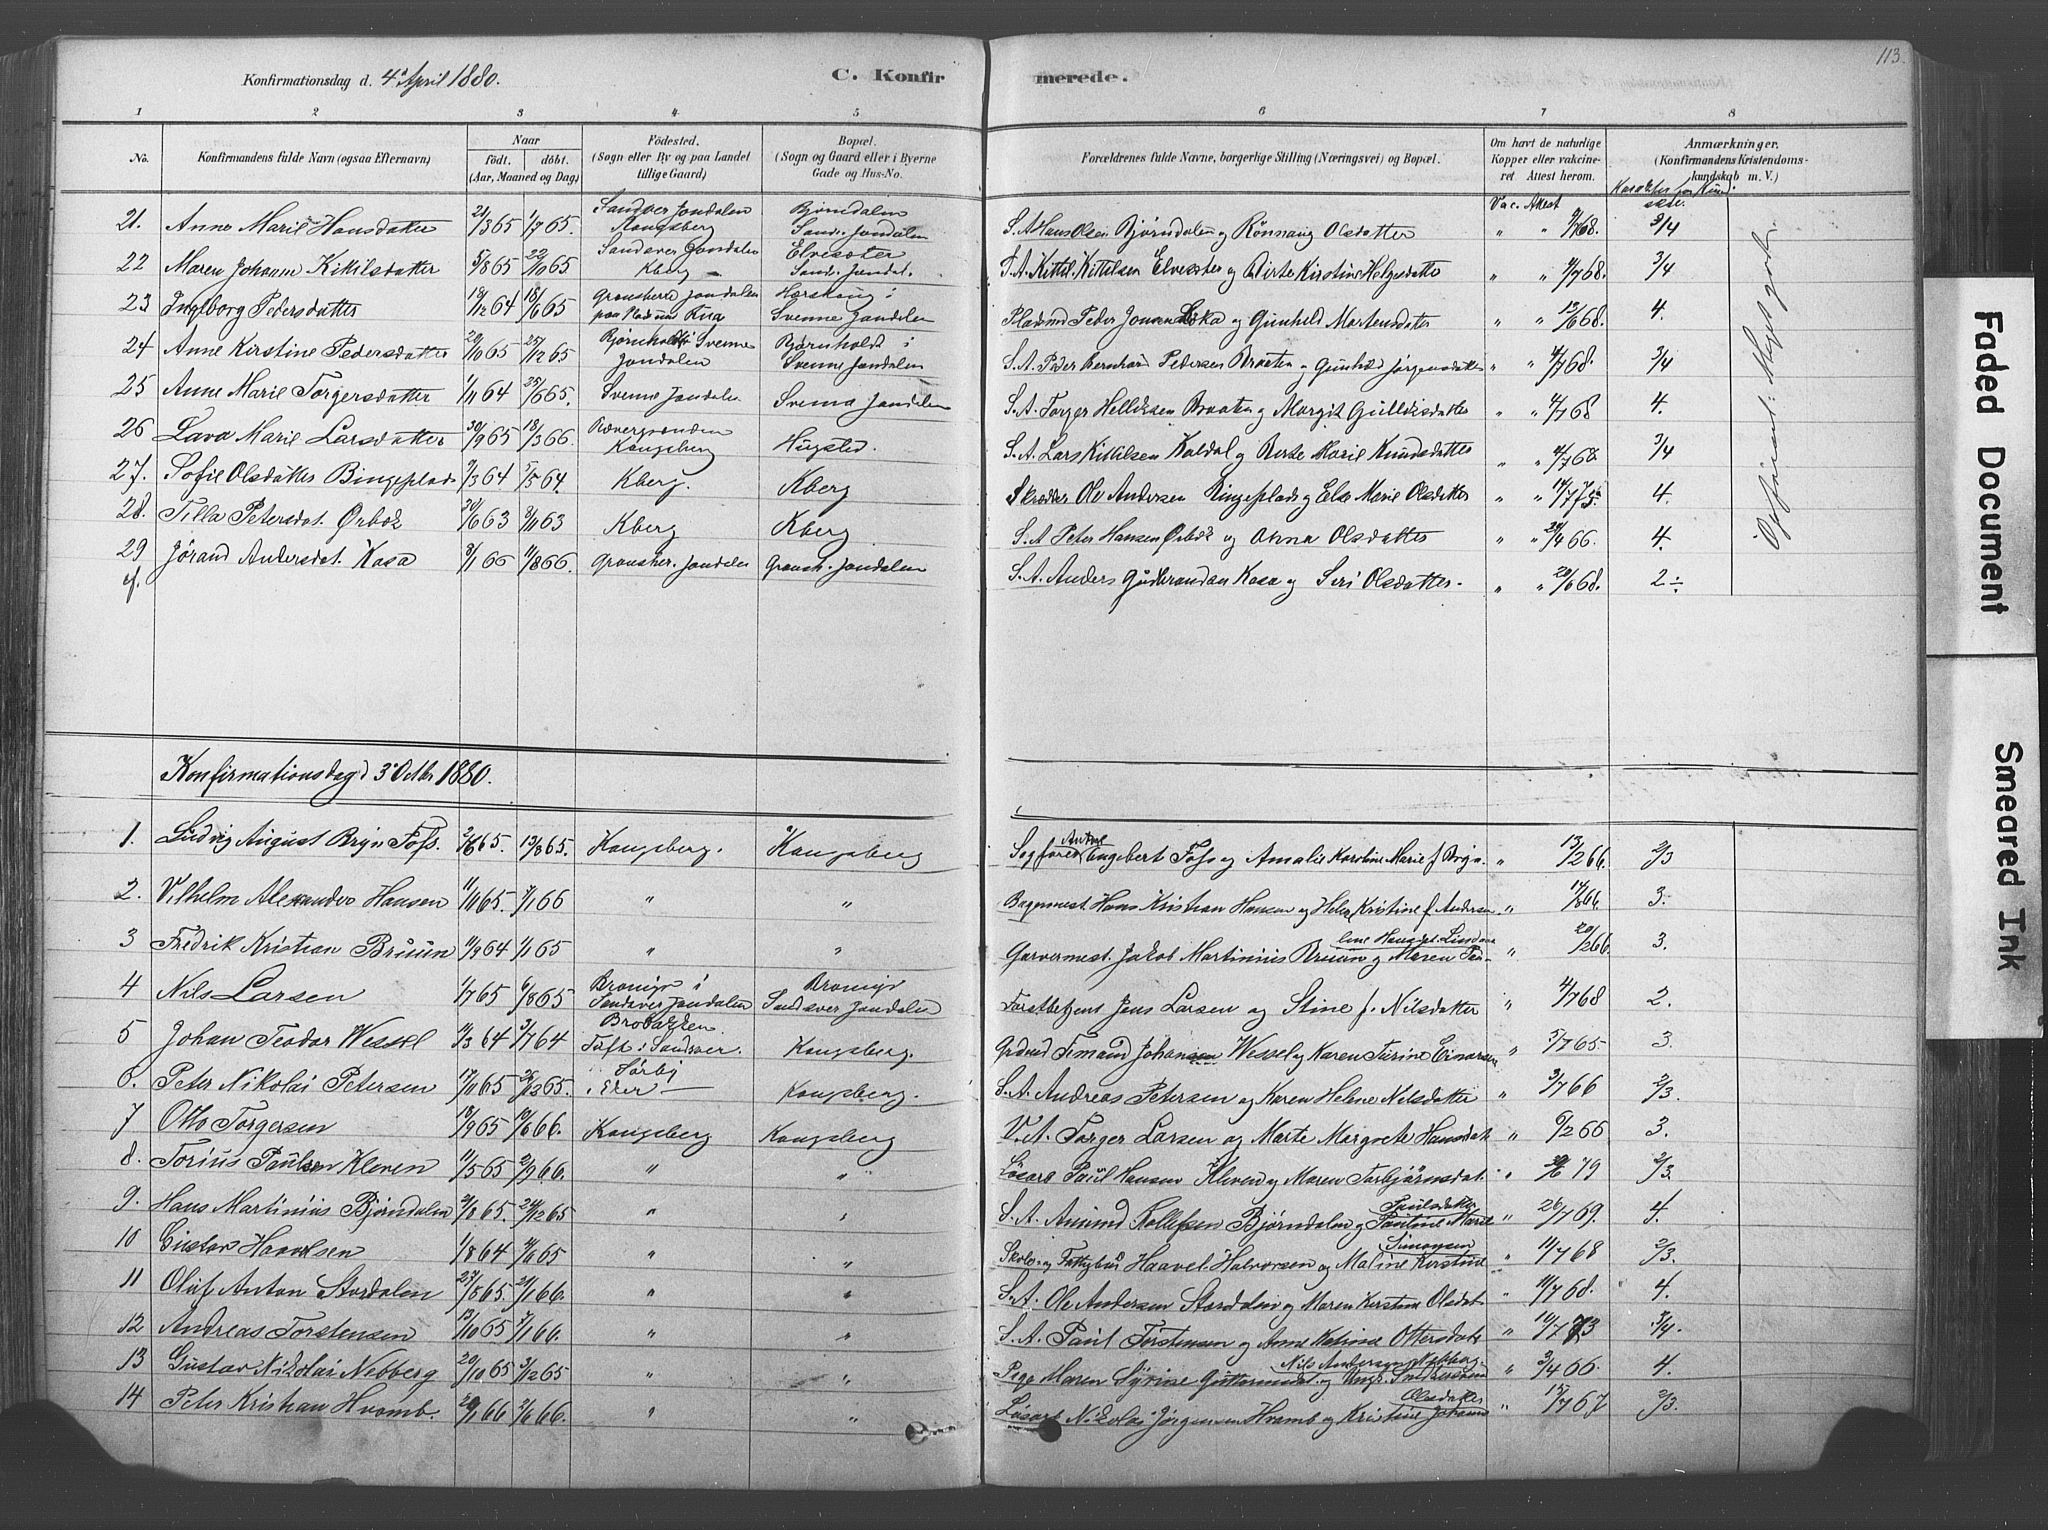 113.
Konfirmationsdag d. 4. April 1880.
C. Konfirmerede.
1 2 3 4 5 6 7 8
No.
Konfirmandens fulde Navn (ogsaa Efternavn)
Naar
födt. döbt.
(Aar, Maaned og Dag)
Födested.
(Sogn eller By og paa Landet
tillige Gaard)
Bopæl.
(Sogn og Gaard eller i Byerne
Gade og Hus-No.
Forældrenes fulde Navne, borgerlige Stilling (Næringsvei) og Bopæl.
Om havt de naturlige
Kopper eller vakcine-
ret Attest herom.
Anmærkninger.
(Konfirmandens Kristendoms-
kundskab m. V.)
Vac. Attest
21. Anne Marie Hansdatter 21/3 65 1/7 65. Sandsver Jondalen Kongsberg Bjørndalen Sands. Jondalen S. A. Hans Olsen Bjørndalen og Rønnaug Olsdatter " " 9/7 68. 3/4
22 Maren Johanne Kittilsdatter 5/8 65 22/10 65 Sandsver Jondalen Kberg Elvesæter Sands. Jondal. S. A. Kittil Kittilsen Elvesæter og Birte Kirstine Helgesdatter " " 9/7 68. 3/4
23 Ingeborg Pedersdatter 18/12 64 18/6 65 Gransherd Jondalen paa Pladsen Kasa Hørskaug i Svenne Jondalen Pladsmd Peder Jonsen Løka og Gunhild Mortensdatter " " 13/6 68. 4.
24 Anne Kirstine Pedersdatter 20/10 65 25/12 65 Bjørnholdt i Svenne Jondalen Bjørnholdt i Svenne Jondalen S. A. Peder Bernhard Pedersen Braaten og Gunhild Jørgensdatter " " 4/7 68. 3/4
25 Anne Marie Torgersdatter 1/11 64 25/6 65. Svenne Jondalen Svenne Jondalen S. A. Torger Helliksen Braaten og Margit Gulliksdatter " " 4/7 68 4.
26 Lava Marie Larsdatter 30/9 65 18/3 66. Kongsberg Hugsted. S. A. Lars Kittilsen Koldal og Berte Marie Knudsdatter " " 4/7 68 3/4
27. Sofie Olsdatter Bingeplads 7/3 64 1/5 64. Kberg. Kberg Skrædder Ole Andersen Bingeplads og Else Marie Olsdatter " " 14/7 75. 4.
28. Tilla Petersdat. Ørbæk 20/6 63 8/11 63 Kberg Kberg S. A Peter Hansen Ørbæk og Anna Olsdatter " " 24/4 66. 4.
29 Jørand Andersdat. Kasa 8/1 66 11/8 66 Gransher. Jondalen Gransh. Jondalen S. A. Anders Gudbrandsen Kasa og Siri Olsdatter. " " 20/6 68. 2÷
Konfirmationsdag d 3. Octbr 1880.
1. Ludvig August Bryn Foss. 2/6 65. 13/8 65. Kongsberg. Kongsberg Sagfører Anton Engebert Foss og Amalie Karoline Marie f Bryn. " 13/2 66. 2/3
2. Vilhelm Alexander Hansen 11/10 65. 7/1 66 " " Bagermest. Hans Kristian Hansen og Helene Kristine f. Andersen " 14/8 66. 3.
3 Fredrik Kristian Bruun 11/9 64 1/1 65 " " Garvermest. Jakob Martinius Bruun og Maren " 20/2 66. 3.
4 Nils Larsen 1/7 65 6/8 65 Bromyr i Sandsver Jondalen Bromyr Sandsver Jondalen Forstbetjent Jens Larsen og Stine f. Nilsdatter " 4/7 68 2.
5 Johan Teodor Wessel 14/3 64 3/7 64 Brobakken Tuft i Sandsver. Kongsberg. Johansen Wessel og Karen Turine Einarsen " 5/7 65. 3.
6. Peter Nikolai Petersen 17/11 65 26/12 65. Sørby i Eker Kongsberg. S. A. Andreas Petersen og Karen Helene Nilsdatter " 3/7 66 2/3.
7 Otto Torgersen 18/9 65 10/6 66. Kongsberg Kongsberg V. A. Torger Larsen og Marte Margrete Hansdat. " 6/2 66 3.
8. Torius Paulsen Kleven 11/5 65 2/9 66. " " Løsarb Paul Hansen Kleven og Maren Torbjørnsdat. " 30/6 79 2/3.
9. Hans Martinius Bjørndalen 2/8 65. 24/12 65 " " S. A. Amund Tollefsen Bjørndalen og Pauline Marie Paulsdatter " 26/7 69. 4.
10 Gustav Haavelsen 1/8 64 4/6 65 " " Skole- og Fattigbud Haavel Halvorsen og Maline Kirstine Simonsen " 11/7 68 2/3.
11 Oluf Anton Stordalen 27/8 65. 21/1 66. " " S. A. Ole Andersen Stordalen og Maren Kirstine Olsdat. " 11/7 68. 4.
12 Andreas Torstensen 13/10 65 7/1 66. " " S. A. Paul Torstensen og Anne Katrine Ottersdat. " 10/7 73 3/4.
13 Gustav Nikolai Nebberg 20/10 65 3/12 65 " " Pige Maren Syrine Guttormsdat. og Ungk. Nils Andersen Nebberg " 3/4 66. 4.
14 Peter Kristian Hvamb. 20/1 66 2/6 66. " " Løsarb Nikolai Jørgensen Hvamb og Kristine Johanne Olsdatter " 15/7 67 2/3.
Faded Document
Smeared Ink